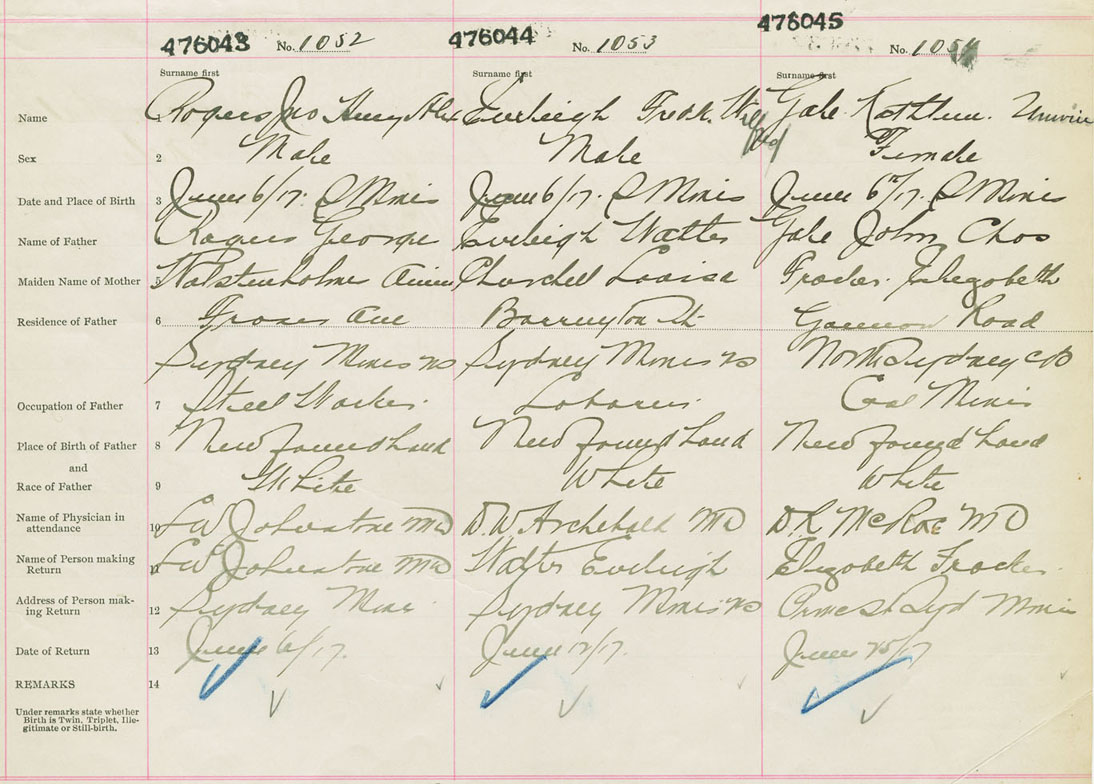 476043 No. 1052 476044 No. 1053 476045 No. 1054
Surname first Surname first Surname first
Name 1 Rogers Jno Henry Alex Eveleigh Fredk. Wilfred Gale Kathleen.
Sex 2 Male Male Female
Date and Place of Birth 3 June 6/17. S Mines June 6/17. S Mines June 6th/17. S Mines
Name of Father 4 Rogers George Eveleigh Walter Gale John Chas
Maiden Name of Mother 5 Churchell Louisa
Residence of Father 6 Frazer Ave Barrington St. Road
Sydney Mines NS Sydney Mines NS North Sydney CB
Occupation of Father 7 Steel Worker. Laborer. Coal Miner
Place of Birth of Father 8 Newfoundland Newfoundland Newfoundland
and
Race of Father 9 White White White
Name of Physician in
attendance 10 LW Johnstone MD D.W. Archibald MD D.R. McRae MD
Name of Person making
Return 11 LW Johnstone MD Walter Eveleigh Elizabeth
Address of Person mak-
ing Return 12 Sydney Mines Sydney Mines NS Syd Mines
Date of Return 13 June 6/17. June 12/17. June 25/17
REMARKS 14
Under remarks state whether
Birth is Twin, Triplet, Ille-
gitimate or Still-birth.